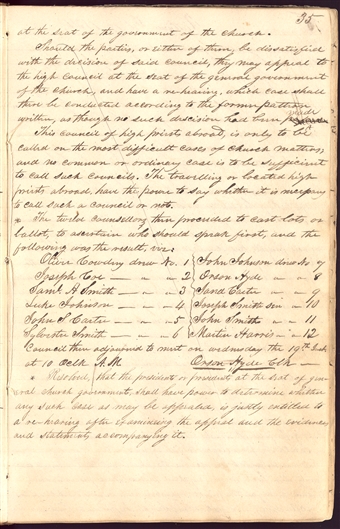 35
at the seat of the government of the church.
Should the parties, or either of them, be dissatisfied
with the decision of said council, they may appeal to
the high council at the seat of the general government
of the church, and have a re-hearing, which case shall
then be conducted according to the former pattern
written, as though no such descision had been made
This council of high priests abroad, is only to be
called on the most difficult cases of church matters,
and no common or ordinary case is to be sufficient
to call such councils. The travelling or located high
priests abroad, have the power to say whether it is necessary
to call such a council or not.
" The twelve counsellors then proceeded to cast lots or
ballot, to ascertain who should speak first, and the
following was the result, viz—
Olive Cowdry drew No. 1 John Johnson drew No 7
Joseph Coe — " " 2 Orson Hyde — " 8
Saml. H. Smith — " 3 Jared Carter — " 9
Luke Johnson — " 4 Joseph Smith sen " 10
John S. Carter — " 5 John Smith — " 11
Sylvester Smith — " 6 Martin Harris — " 12
Council then adjourned to meet on wednesday the 19th Inst
at 10 Oclk A.M. Orson Hyde Clk —
" Resolved, that the president or presidents at the seat of gen-
eral church government, shall have power to determine whether
any such case as may be appealed, is justly entitled to
a re-hearing after examining the appeal and the evidences
and statements accompanying it.